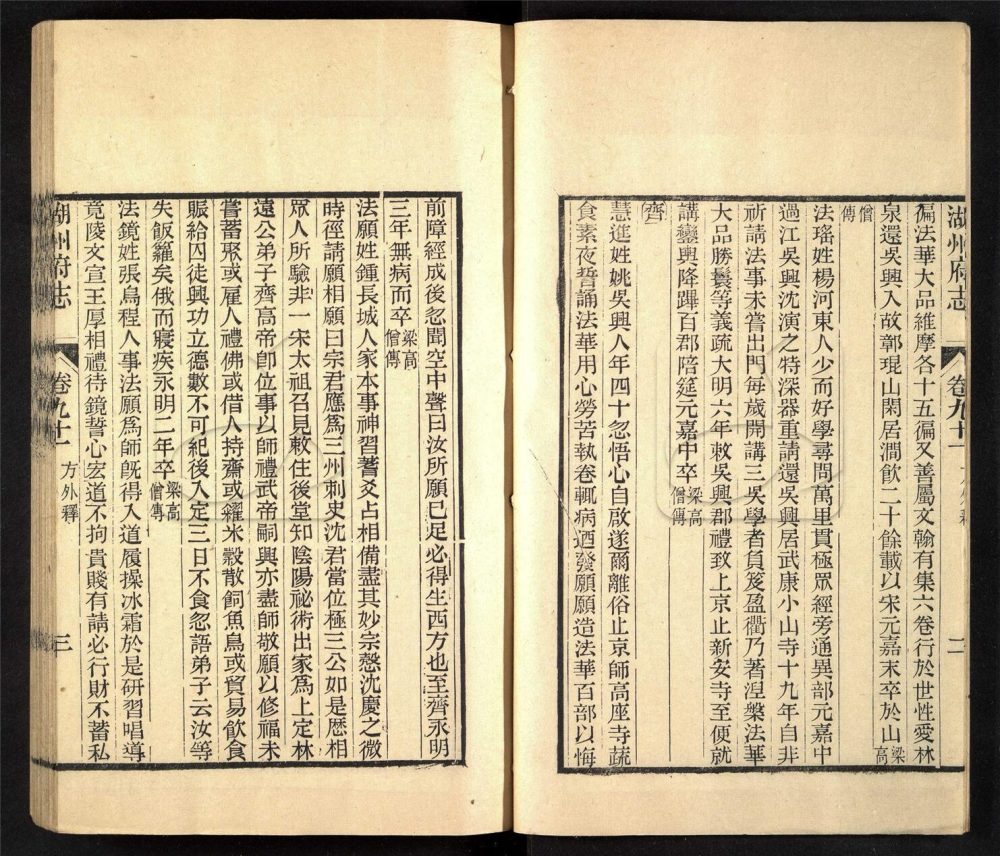 湖州府志
卷九十一
二
徧法華大品維摩各十五徧又善屬文翰有集六卷行於世性愛林
泉還吳興入故鄣琨山閑居澗飲二十餘載以宋元嘉末卒於山梁高
僧傳
法瑤姓楊河東人少而好學尋問萬里貫極眾經旁通異部元嘉中
過江吳興沈演之特深器重請還吳興居武康小山寺十九年自非
祈請法事未嘗出門每歲開講三吳學者負笈盈衢乃著涅槃法華
大品勝鬘等義疏大明六年敕吳興郡禮致上京止新安寺至便就
講鑾輿降蹕百郡陪筵元嘉中卒梁高僧傳
齊
慧進姓姚吳興人年四十忽悟心自啟遂爾離俗止京師高座寺蔬
食素夜誓誦法華用心勞苦執卷輒病迺發願願造法華百部以悔
前障經成後忽聞空中聲曰汝所願已足必得生西方也至齊永明
三年無病而卒梁高僧傳
法願姓鍾長城人家本事神習蓍爻占相備盡其妙宗慤沈慶之微
時徑請願相願曰宗君應爲三州刺史沈君當位極三公如是歷相
眾人所驗非一宋太祖召見敕住後堂知陰陽祕術出家爲上定林
遠公弟子齊高帝卽位事以師禮武帝嗣興亦盡師敬願以修福未
嘗蓄聚或雇人禮佛或借人持齋或糴米穀散飼魚鳥或貿易飲食
賑給囚徒興功立德數不可紀後入定三日不食忽語弟子云汝等
失飯籮矣俄而寢疾永明二年卒梁高僧傳
法鏡姓張烏程人事法願爲師旣得入道履操冰霜於是研習唱導
竟陵文宣王厚相禮待鏡誓心宏道不拘貴賤有請必行財不蓄私
湖州府志
卷九十一
方外釋
三